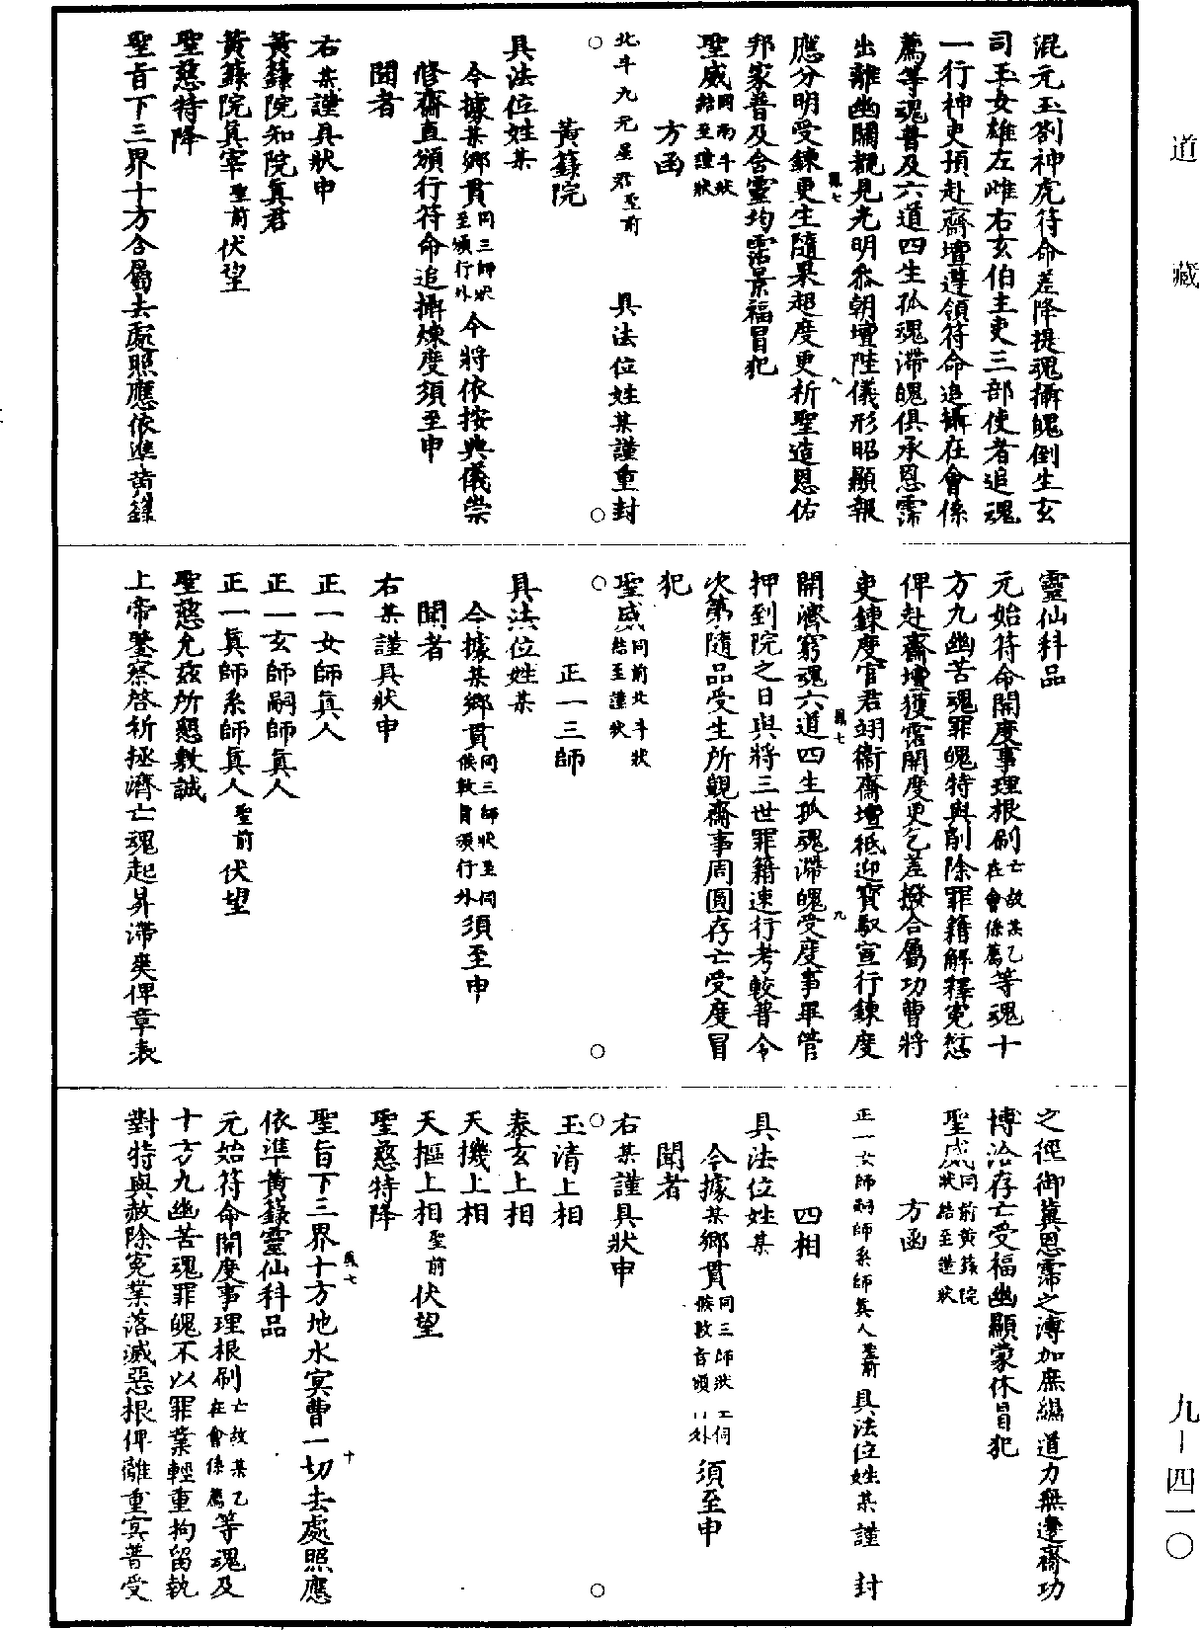 道藏
混元玉劄神虎符命差降提魂攝魄倒生玄
司玉女雄左雌右玄伯主吏三部使者追魂
一行神吏預赴齋壇遵領符命追攝在會係
薦等魂普及六道四生孤魂滯魄俱承恩霈
出離幽關覩見光明忝朝壇陛儀形昭顯報
應分明受鍊更生隨果超度更祈聖造恩佑
邦家普及含靈均霑景福冒犯
聖威同南斗狀結至謹狀
方函
北斗九元星君聖前 具法位姓某謹重封
○ ○
黃籙院
具法位姓某
今據某鄉貫同三師狀至頒行外今將依按典儀崇
修齋直頒行符命追攝煉度須至申
聞者
右某謹具狀申
黃籙院知院真君
黃籙院真宰聖前伏望
聖慈特降
聖旨下三界十方合屬去處照應依準黃籙
靈仙科品
元始符命開度事理根刷亡故某乙在會係薦等魂十
方九幽苦魂罪魄特與削除罪籍解釋冤愆
俾赴齋壇獲霑開度更乞差撥合屬功曹將
吏鍊度官君翊衛齋壇祗迎寶馭宣行鍊度
鳳七
開濟窮魂六道四生孤魂滯魄受度事畢管
九
押到院之日與將三世罪籍速行考較普令
次第隨品受生所覬齋事周圓存亡受度冒
犯
聖威同前北斗狀結至謹狀
○ ○
正一三師
具法位姓某
今據某鄉貫同三師狀至伺候敕旨頒行外須至申
聞者
右某謹具狀申
正一女師真人
正一玄師嗣師真人
正一真師系師真人聖前伏望
聖慈允茲所懇敷誠
上帝鑒察啓祈拯濟亡魂起昇滯爽俾章表
之徑御冀恩霈之溥加庶緣道力無邊齋功
博洽存亡受福幽顯蒙休冒犯
聖威同前黃籙院狀結至謹狀
方函
正一女師嗣師系師真人聖前 具法位姓某謹 封
四相
具法位姓某
今據某鄉貫同三師狀至伺候敕旨頒行外須至申
聞者
右某謹具狀申
○ ○
玉清上相
泰玄上相
天機上相
天樞上相聖前伏望
聖慈特降
鳳七 十
聖旨下三界十方地水冥曹一切去處照應
依準黃籙靈仙科品
元始符命開度事理根刷亡故某乙在會係薦等魂及
十方九幽苦魂罪魄不以罪業輕重拘留執
對特與赦除冤業落滅惡根俾離重冥普受
九—四一〇